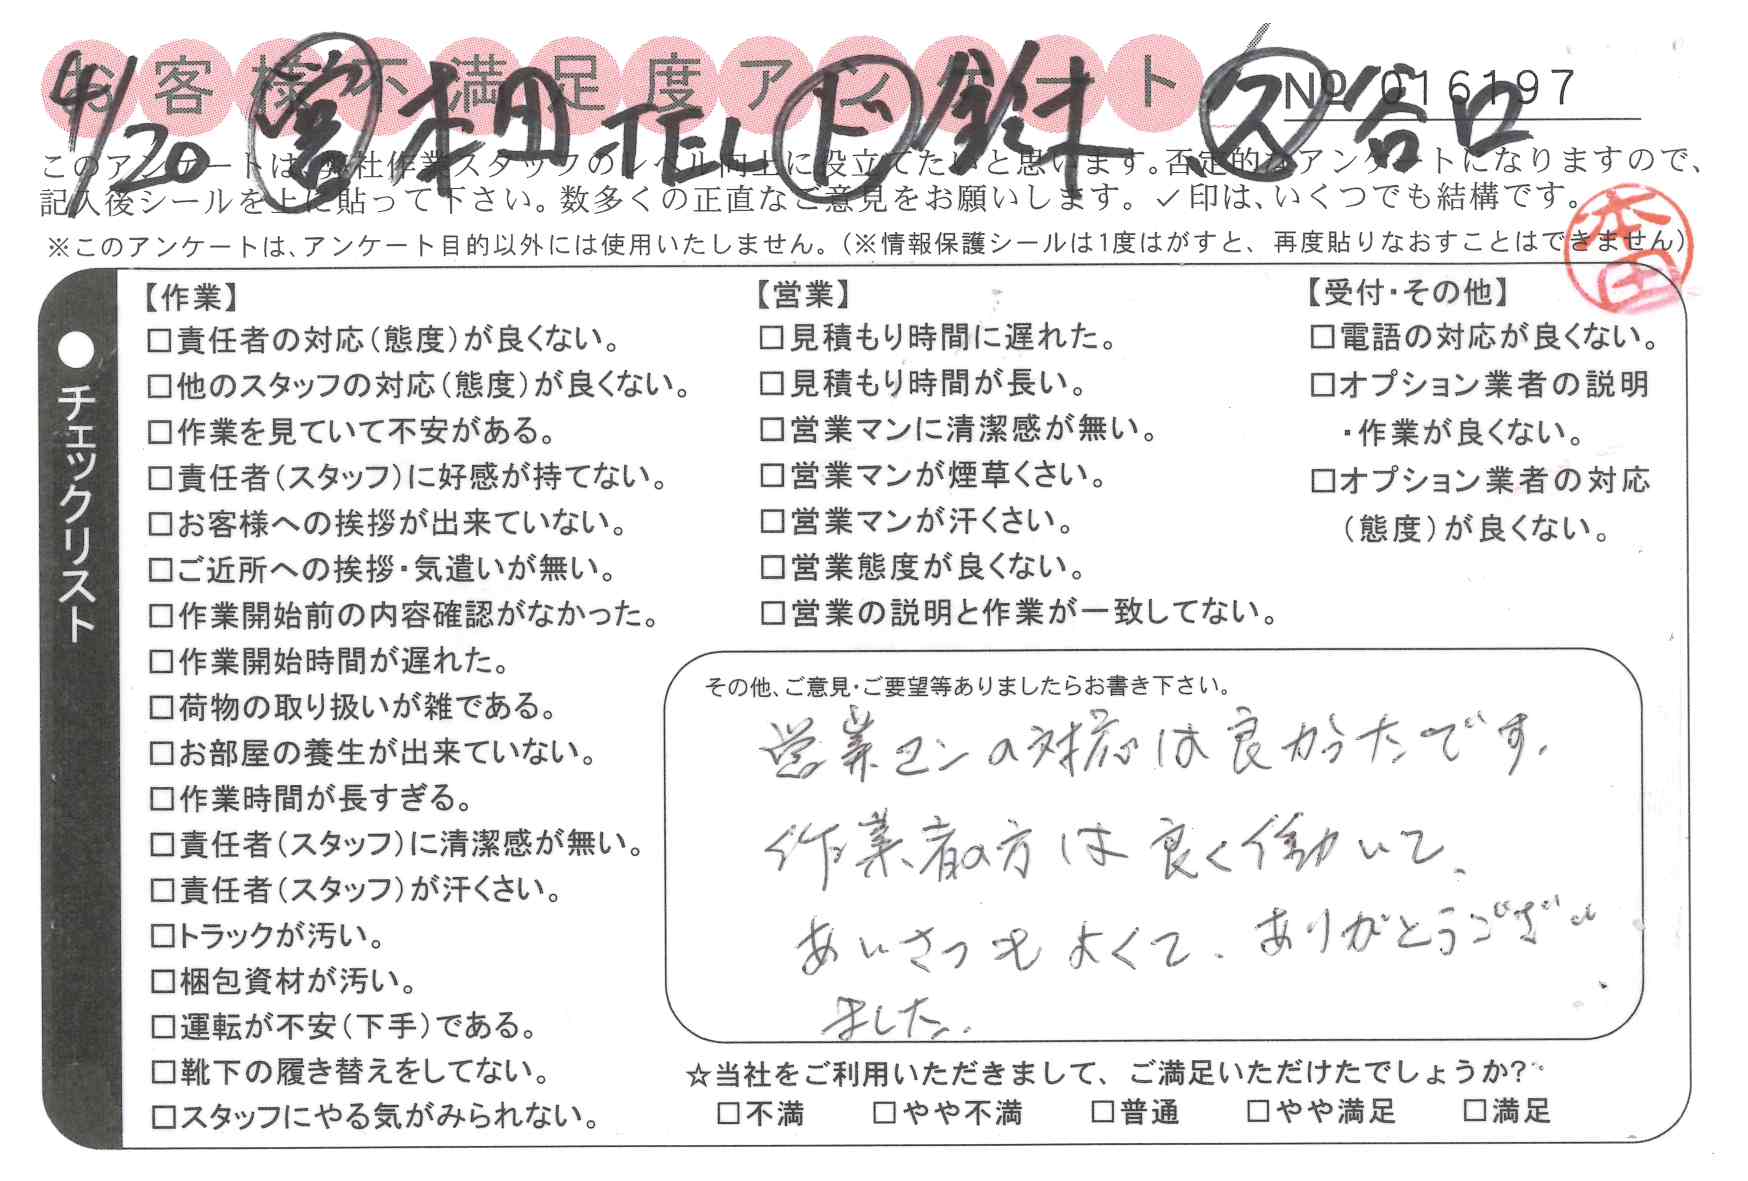 お客様不満足度アンケート
№ 016197
4/20 営 本田 TEL ド 鈴木 ス 谷口
このアンケートは、弊社作業スタッフのレベル向上に役立てたいと思います。否定的なアンケートになりますので、
記入後シールを上に貼って下さい。数多くの正直なご意見をお願いします。✓印は、いくつでも結構です。
※このアンケートは、アンケート目的以外には使用いたしません。(※情報保護シールは1度はがすと、再度貼りなおすことはできません)
本田
●チェックリスト
【作業】
□責任者の対応(態度)が良くない。
□他のスタッフの対応(態度)が良くない。
□作業を見ていて不安がある。
□責任者(スタッフ)に好感が持てない。
□お客様への挨拶が出来ていない。
□ご近所への挨拶・気遣いが無い。
□作業開始前の内容確認がなかった。
□作業開始時間が遅れた。
□荷物の取り扱いが雑である。
□お部屋の養生が出来ていない。
□作業時間が長すぎる。
□責任者(スタッフ)に清潔感が無い。
□責任者(スタッフ)が汗くさい。
□トラックが汚い。
□梱包資材が汚い。
□運転が不安(下手)である。
□靴下の履き替えをしてない。
□スタッフにやる気がみられない。
【営業】
□見積もり時間に遅れた。
□見積もり時間が長い。
□営業マンに清潔感が無い。
□営業マンが煙草くさい。
□営業マンが汗くさい。
□営業態度が良くない。
□営業の説明と作業が一致してない。
【受付・その他】
□電語の対応が良くない。
□オプション業者の説明
・作業が良くない。
□オプション業者の対応
(態度)が良くない。
その他、ご意見・ご要望等ありましたらお書き下さい。
営業マンの対応は良かったです。
作業者の方は良く働いて、
あいさつもよくて、ありがとうござい
ました。
☆当社をご利用いただきまして、ご満足いただけたでしょうか?
□不満 □やや不満 □普通 □やや満足 □満足